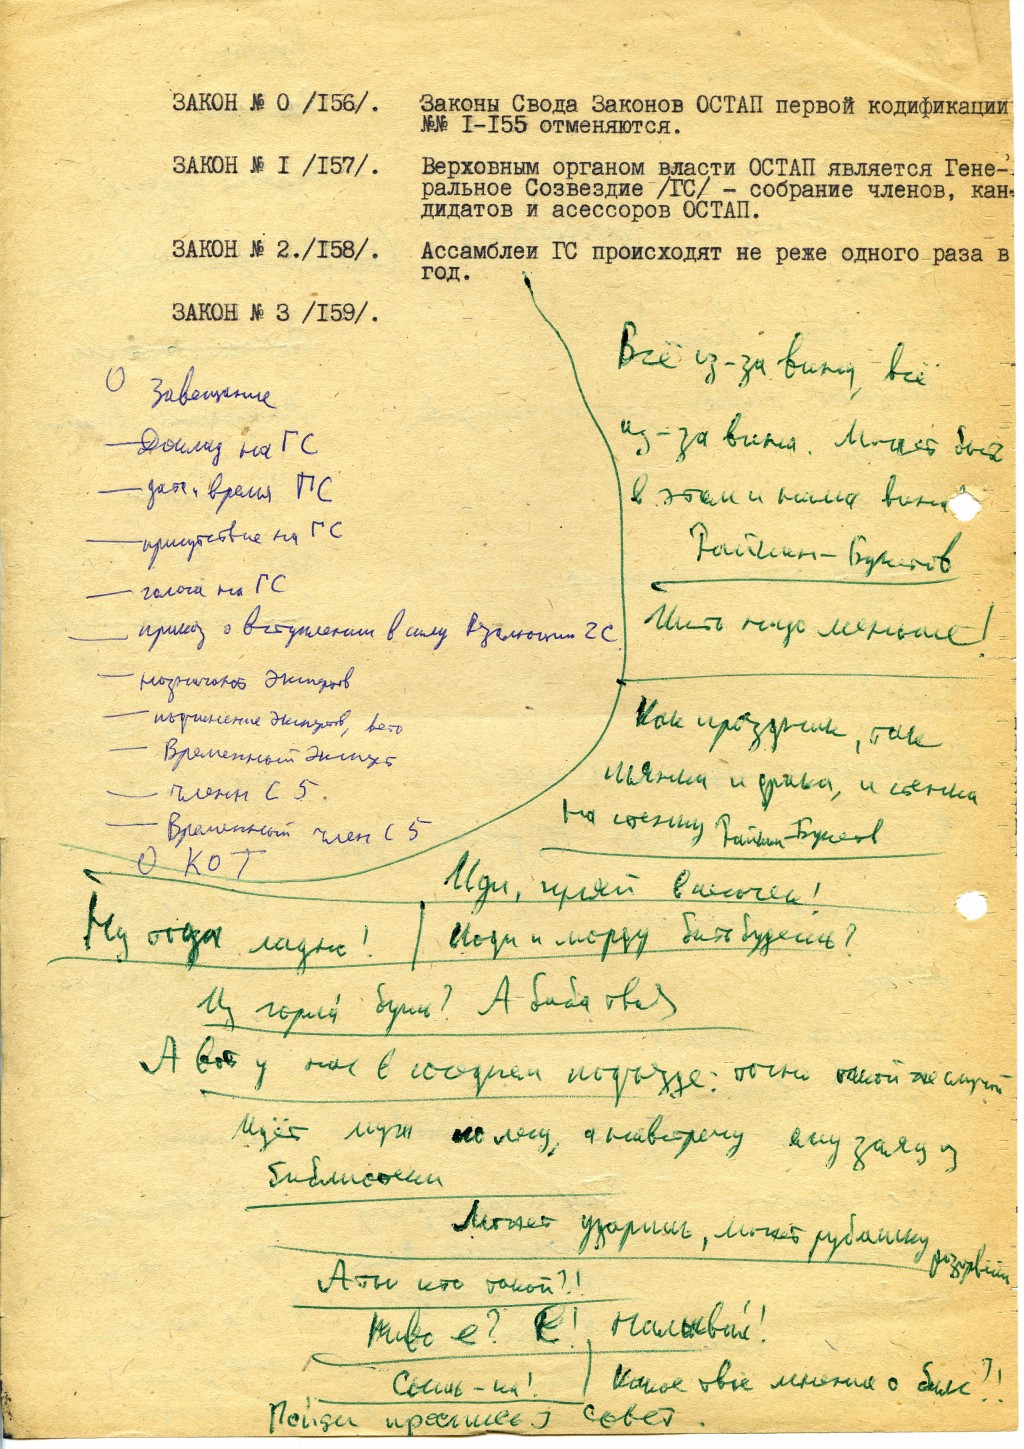 ЗАКОН № 0 /I56/. Законы Свода Законов ОСТАП первой кодификации
№№ I-I55 отменяются.
ЗАКОН № I /I57/. Верховным органом власти ОСТАП является Гене-
ральное Созвездие /ГС/ - собрание членов, кан-
дидатов и асессоров ОСТАП.
ЗАКОН № 2./I58/. Ассамблеи ГС происходят не реже одного раза в
год.
ЗАКОН № 3 /I59/.
О Завещание
— Доклад на ГС
— дата, время ГС
— присутствие на ГС
— голоса на ГС
— приказ о вступлении в силу ГС
— назначает экспертов
— подчинение экспертов, вето
— Временный эксперт
— Члены С 5.
— Временный член С 5
О КОТ
Всё из-за вина, всё
из-за вина. Может быть
в этом и наша вина?
Райкин-Букетов
Пить надо меньше!
Как праздник, так
пьянка и драка, и стенка
на стенку Райкин-Букетов
Иди, гуляй
Ну тогда ладно!
Иди и морду бить будешь?
Из горла будешь? А баба твоя
А вот у нас в соседнем подъезде: точно такой же случай
Идёт муж по лесу, а навстречу ему заяц из
библиотеки
Может ударишь, может рубашку разорвёшь
А ты кто такой?!
Пиво е? Е! Наливай!
Какое твоё мнение о бане?!
Пойди проспись, совет.